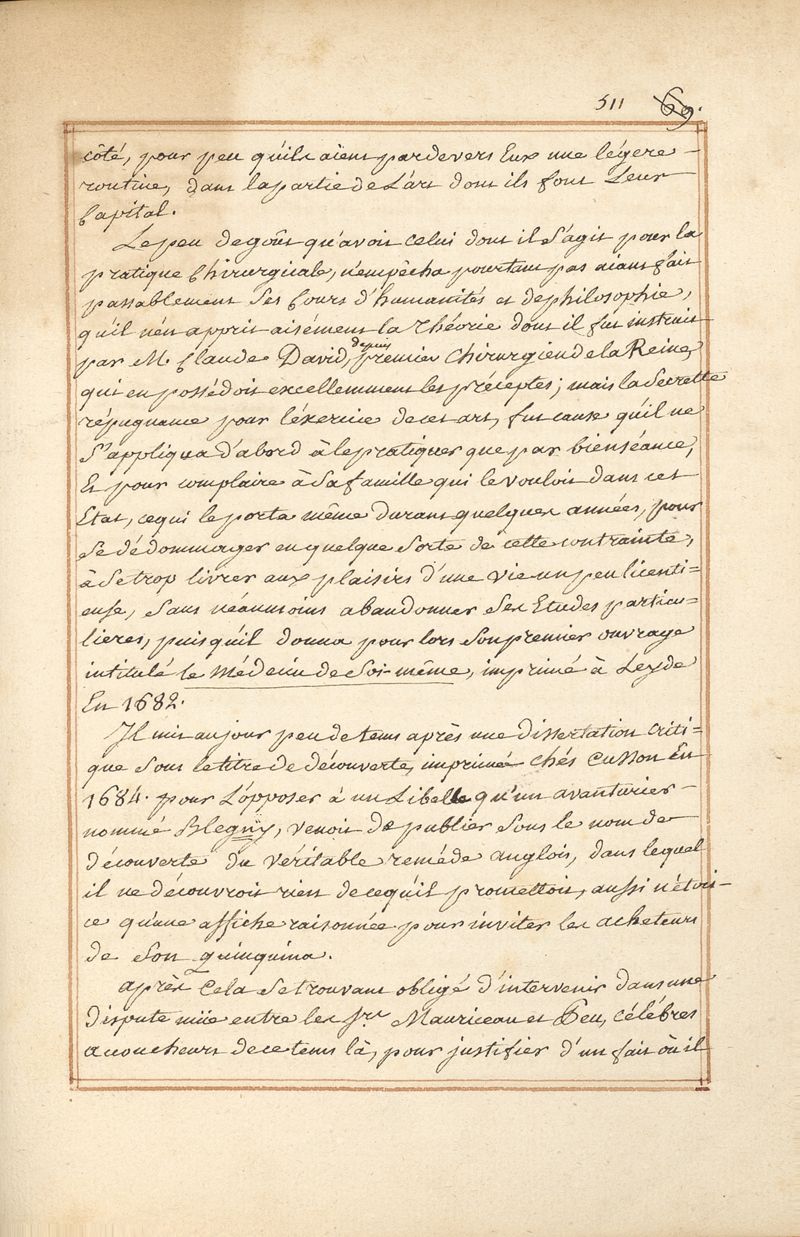 511 69.
côté, pour peu qu'ils aient pardevers Eux une légere
routine, dans la partie de L'art dont ils font Leur
Capital.
Le peu de goût qu'avoit celui dont il S'agit pour la
pratique Chirurgicale, n'empêcha pourtant pas aiant fait
passablement Ses Cours d'humanités et de philosophie,
qu'il n'én apprit aisément la Théorie dont il fut instruit
par M. Claude David, depuis premier Chirurgien de la Reine,
qui en possédoit excellemment les préceptes; mais la Secrette
répugnance pour l'éxercice de cet art, fut cause qu'il ne
S'appliqua d'abord à le pratiquer que par bienséance,
Et pour complaire à Sa famille qui le vouloit dans cet
Etat, ce qui le porta même durant quelques années, pour
Se dédommager en quelque Sorte de cette contrainte,
à Se trop livrer aux plaisirs d'une vie un peu licenti=
euse, Sans néanmoins abandonner Ses Etudes particu=
lieres, puisqu'il donna pour lors Son premier ouvrage
intitulé le Médecin de Soi-même, imprimé à Leyde
En 1682.
Il mit au jour peu de tems après une dissertation criti=
que Sous le titre de découverte, imprimée chés Cusson En
1684. pour L'opposer à un Libelle qu'un avanturier
nommé Blegny, venoit de publier Sous le nom de
découverte du véritable reméde anglois, dans lequel
il ne découvroit rien de ce qu'il promettoit, aussi n'étoit-
ce qu'une affiche raisonnée pour inviter les acheteurs
de Son quinquina.
après Cela Se trouvant obligé d'intervenir dans une
dispute müe entre les Srs. Mauriceau et Peu, célébres
accoucheurs de ce tems là, pour justifier d'un fait où il